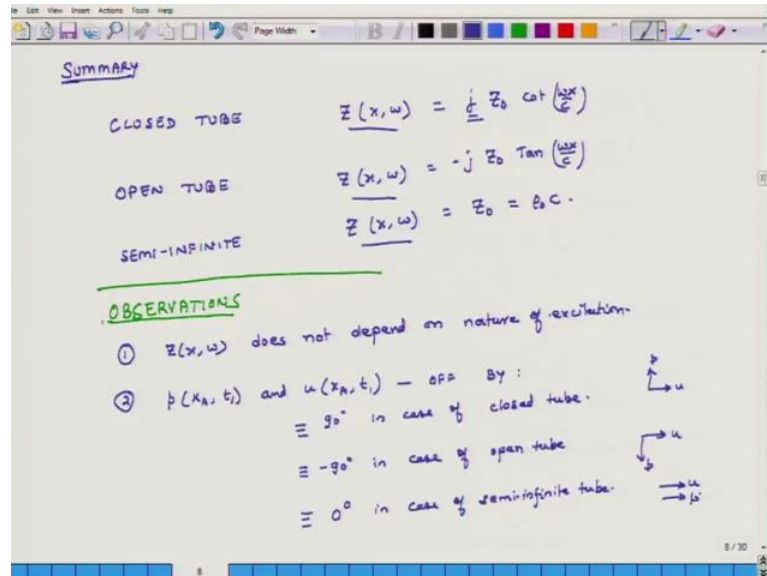 File Edit View Insert Actions Tools Help
Page Width
SUMMARY
CLOSED TUBE Z(x, ω) = j Z₀ cot (ωx/c)
OPEN TUBE Z(x, ω) = -j Z₀ Tan (ωx/c)
SEMI-INFINITE Z(x, ω) = Z₀ = ρ₀ c.
OBSERVATIONS
① Z(x, ω) does not depend on nature of excitation.
② p(x_A, t₁) and u(x_A, t₁) - OFF BY :
≡ 90° in case of closed tube. p u
≡ -90° in case of open tube u p
≡ 0° in case of semi-infinite tube. u p
8 / 30
8